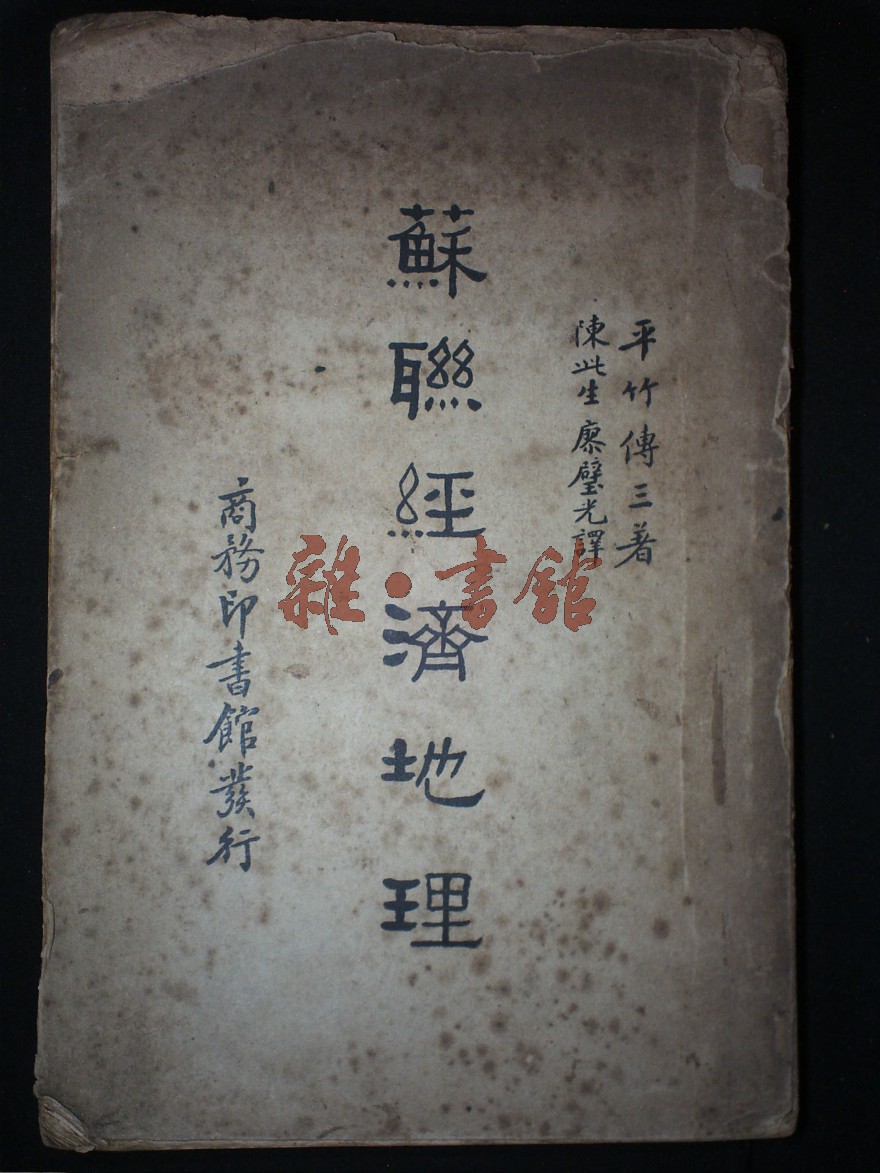 平竹傳三著
陳此生廖璧光譯
蘇聯經濟地理
商務印書館發行
雜·書館